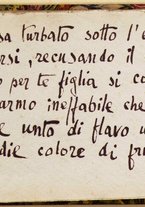 sa turbato sotto l'e
rsi, recusando il
o per te figlia si ca
armo ineffabile che
e unto di flavo u
die colore di fru